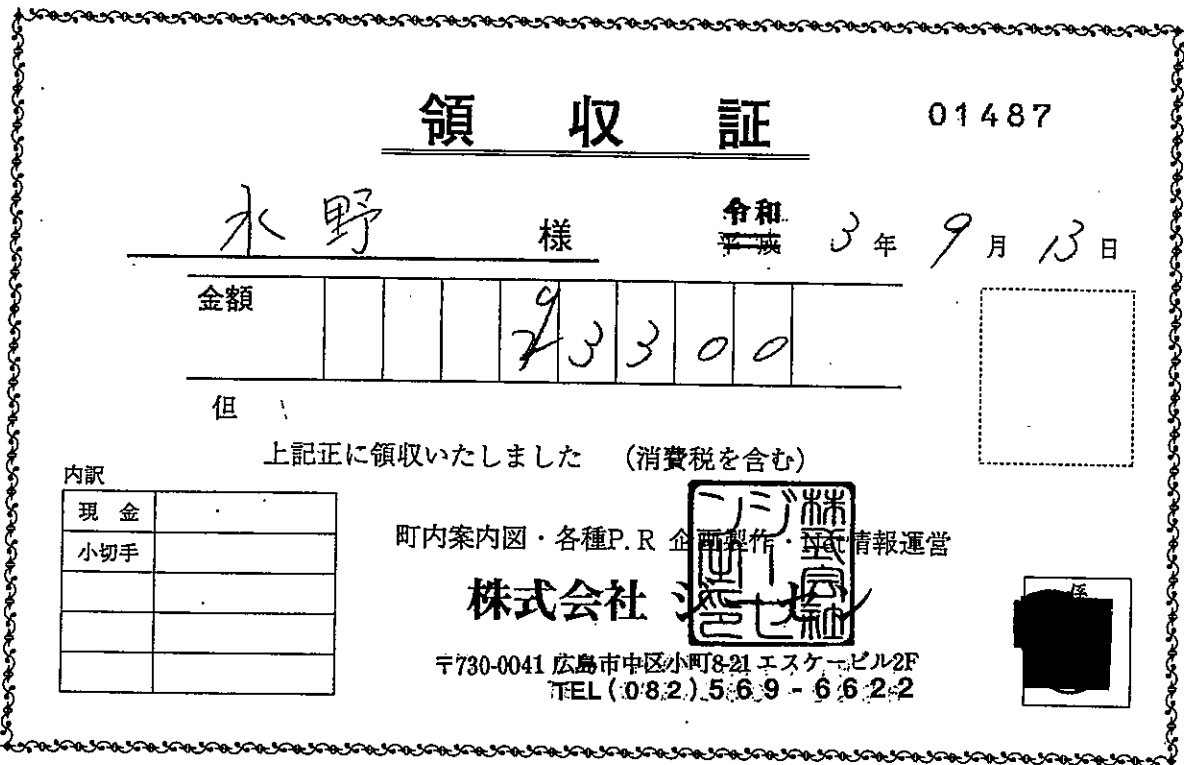 領収証 01487
水野 様 令和 平成 3年 9月 13日
金額 3300
但
上記正に領収いたしました (消費税を含む)
内訳
現金
小切手
町内案内図・各種P.R 企画製作・ 情報運営
株式会社 ジーゼン
株式会社ジーゼン之印
〒730-0041 広島市中区小町8-21 エスケービル2F
TEL(082)569-6622
係